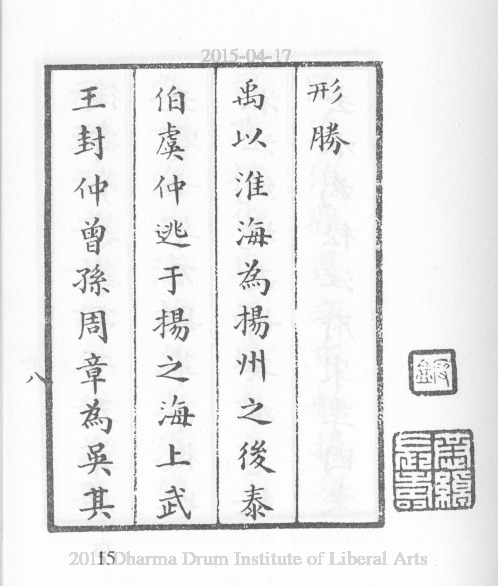 2015-04-17
形勝
禹以淮海為揚州之後泰
伯虞仲逃于揚之海上武
王封仲曾孫周章為吳其
八
15
2015 Dharma Drum Institute of Liberal Arts